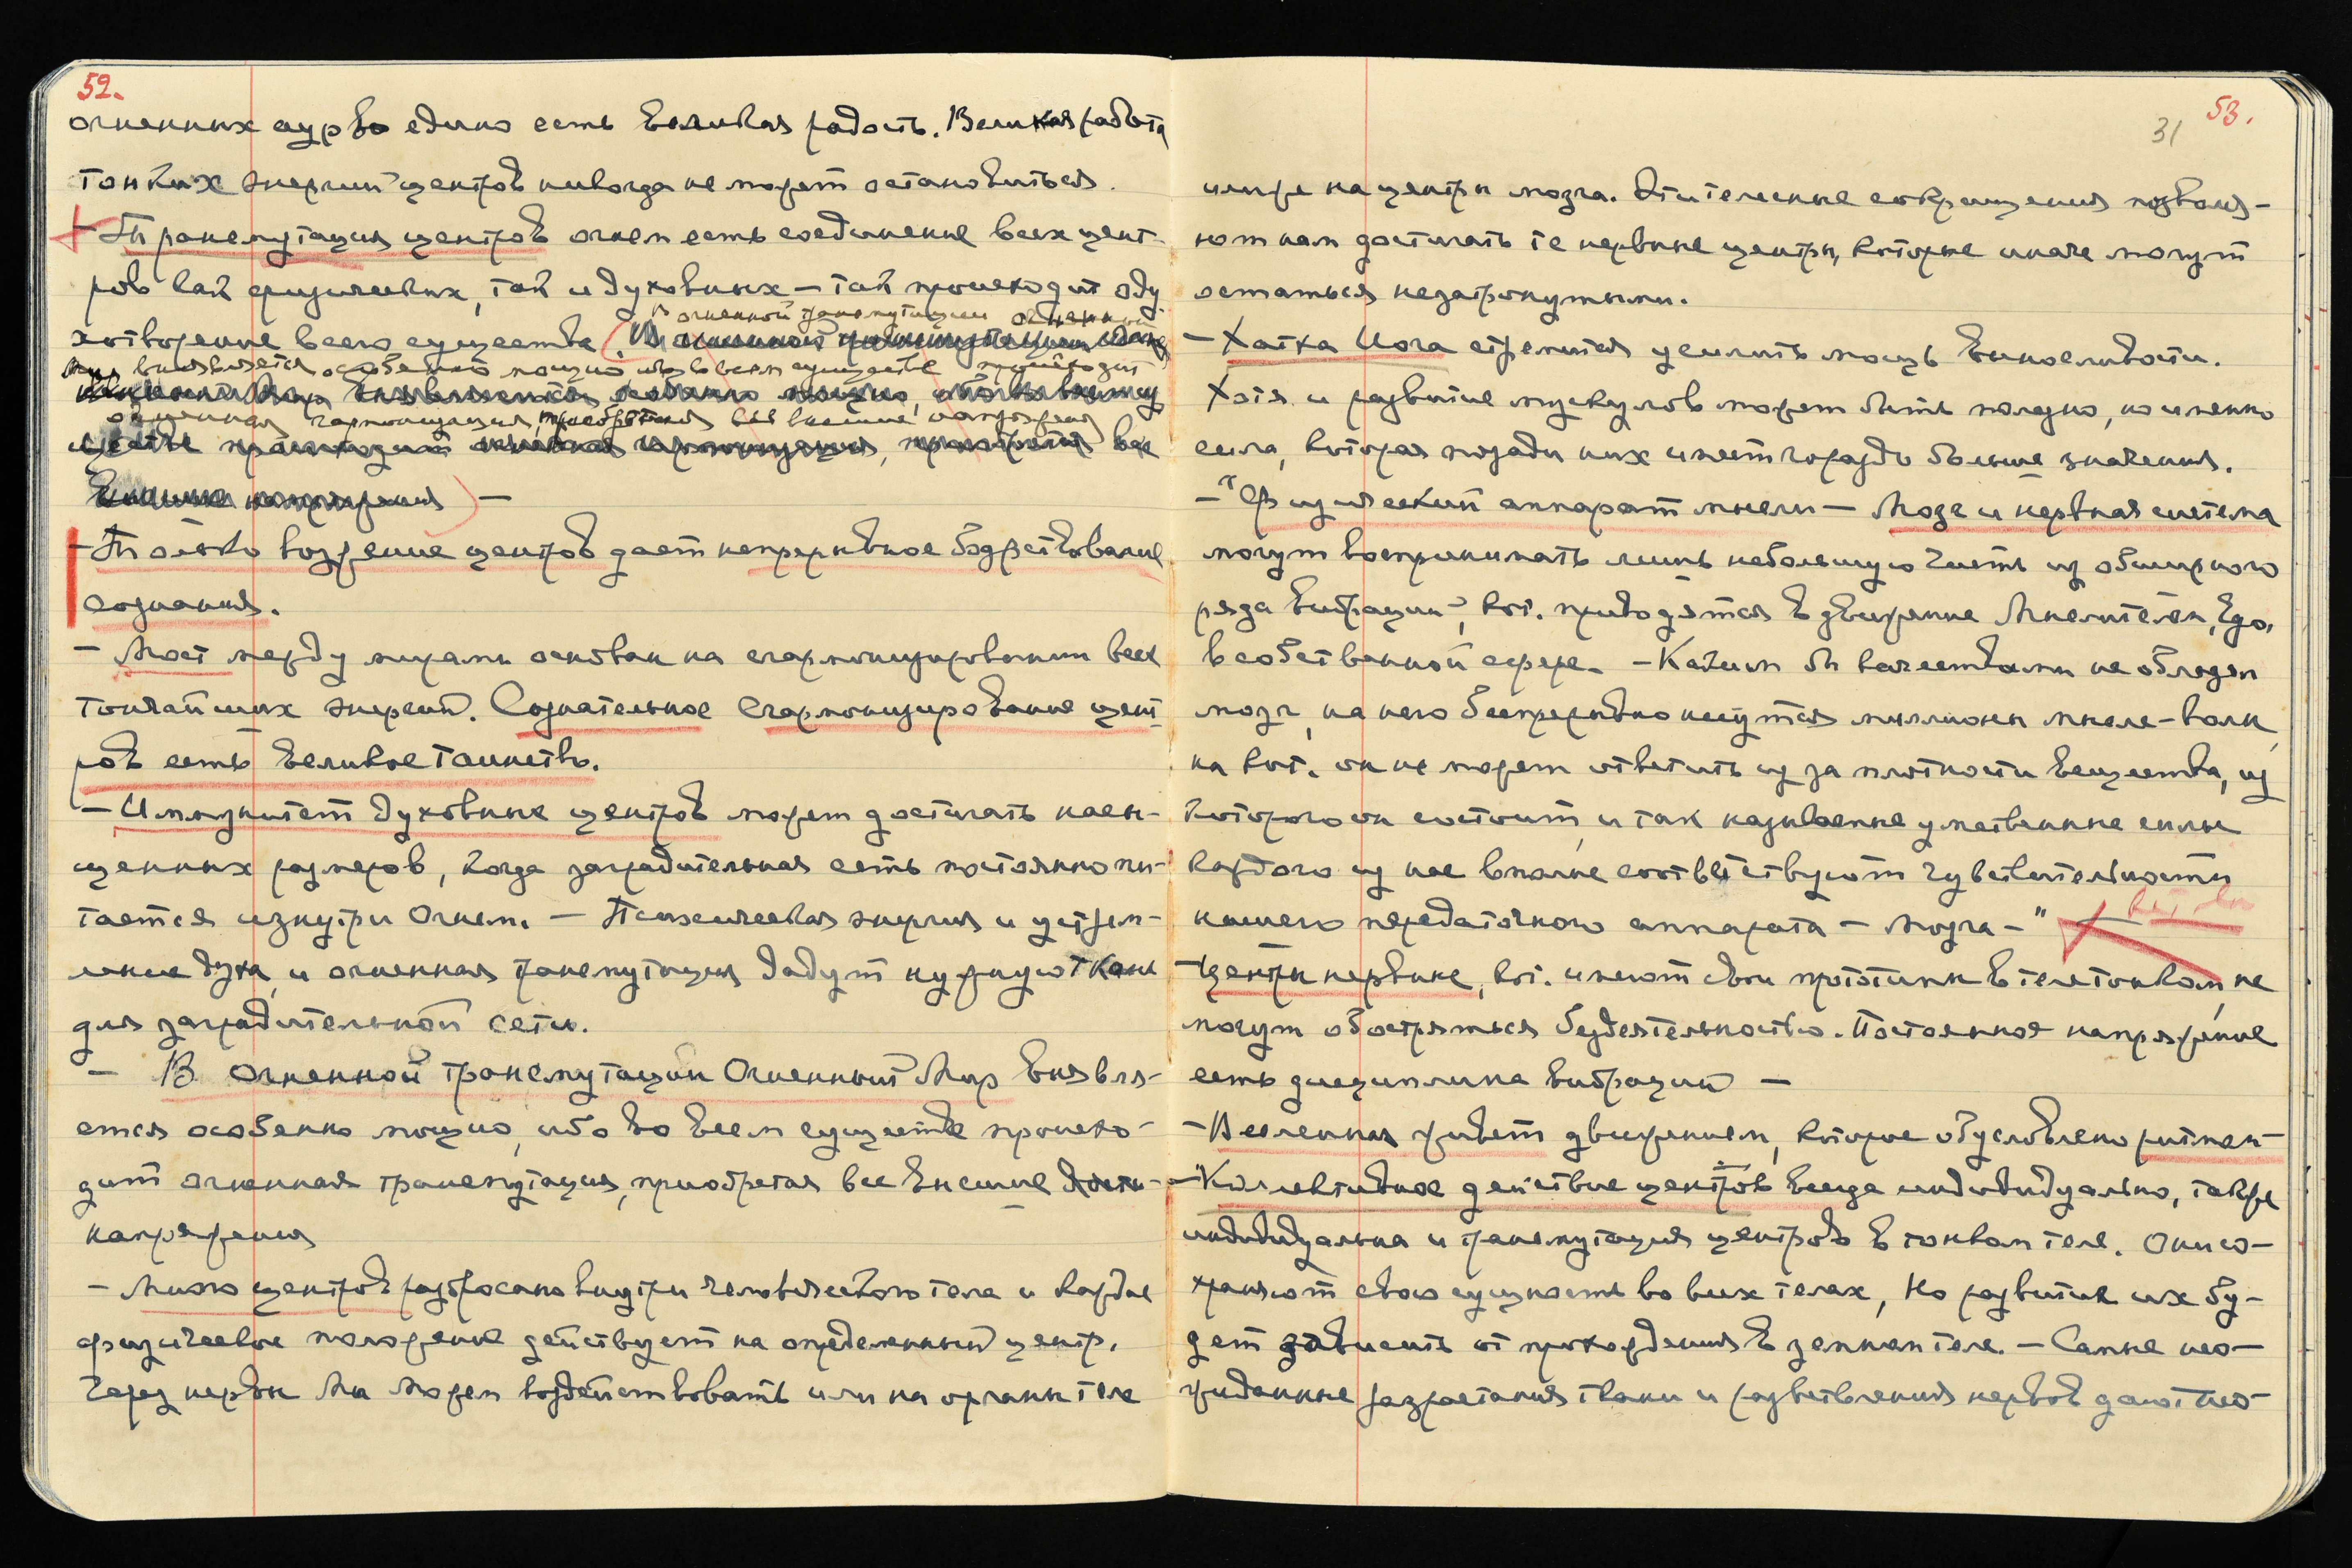 52.
огненных аур во едино есть великая радость. Великая работа
тонких энергий центров никогда не может остановиться.
- Трансмутация центров огнем есть соединение всех цент-
ров как физических, так и духовных - так происходит оду
хотворение всего существа (В огненной трансмутации огненный
мир выявляется особенно мощно ибо во всем существе происходит
огненная гармонизация, приобретая все внешние напряжения
) -
- Только воззрение центров дает непрерывное бодрствование
сознания.
- Мост между мирами основан на сгармонизировании всех
тончайших энергий. Сознательное сгармонизирование цент
ров есть великое таинство.
- Иммунитет духовные центров может достигать насы-
щенных размеров, когда заградительная сеть постоянно пи-
тается изнутри Огнем. - Психическая энергия и устрем-
ление духа, и огненная трансмутация дадут нужную ткань
для заградительной сети.
- В огненной трансмутации Огненный Мир выявля-
ется особенно мощно, ибо во всем существе происхо-
дит огненная трансмутация, приобретая все внешние
напряжения
- Много центров разбросано внутри человеческого тела и каждое
физическое положение действует на определенный центр.
Через нервы мы можем воздействовать или на органы тела
53.
31
или же на центры мозга. Эти телесные сокращения позволя-
ют нам достигать те нервные центры, которые иначе могут
остаться незатронутыми.
- Хатха Йога стремится усилить мощь выносливости.
Хотя и развитие мускулов может быть полезно, но именно
сила, которая позади них имеет гораздо больше значения.
- "Физический аппарат мысли - Мозг и нервная система
могут воспринимать лишь небольшую часть из обширного
ряда вибраций, кот. приводятся в движение Мыслителем, Эго,
в собственной сфере. - Каким бы качествами не обладал
мозг, на него беспрерывно несутся миллионы мысле-волн,
на кот. он не может ответить из за плотности вещества, из
которого он состоит, и так называемые умственные силы
каждого из нас вполне соответствуют чувствительности
нашего передаточного аппарата - мозга -"
- Центры нервные, кот. имеют свои прототипы в теле тонком, не
могут обостряться бездеятельностью. Постоянное напряжение
есть дисциплина вибраций -
- Вселенная живет движением, которое обусловлено ритмом -
- Коллективное действие центров всегда индивидуально, также
индивидуальна и трансмутация центров в тонком теле. Они со-
храняют свою сущность во всех телах, но развитие их бу-
дет зависеть от прохождения в земном теле. - Самые нео-
жиданные разрастания ткани и разветвления нервов дают нео-